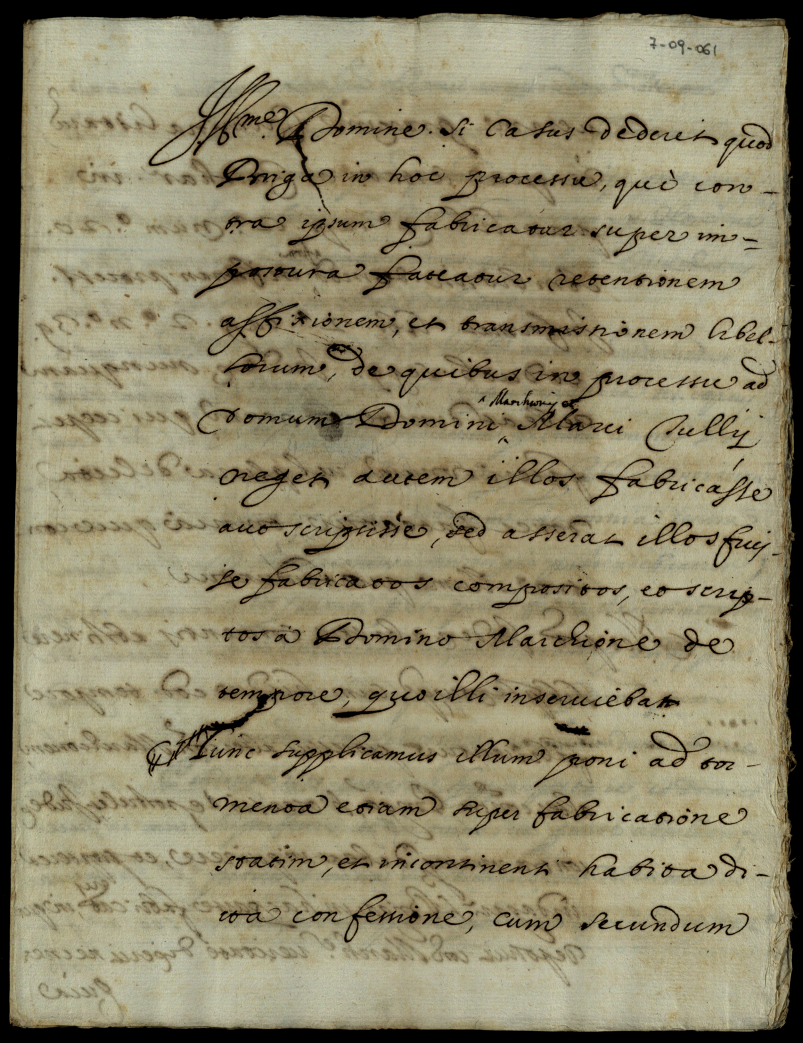 7-09-061
Ill.me Domine. Si Casus dederit quod
Driga in hoc processu, qui con-
tra ipsum fabricatur super im=
postura fateatur retentionem
affixionem, et transmissionem libel-
lorum, de quibus in processu ad
domum Domini ^ Marchionis et Marci Tullij
neget autem illos fabricásse
aut scripsisse, sed asserat illos fuis-
se fabricatos compositos, et scrip-
tos à Domino Marchione de
tempore, quo illi inseruiebat
Nunc supplicamus illum poni ad tor-
menta etiam super fabricatione
statim, et incontinenti habita di-
cta confessione, cum secundum